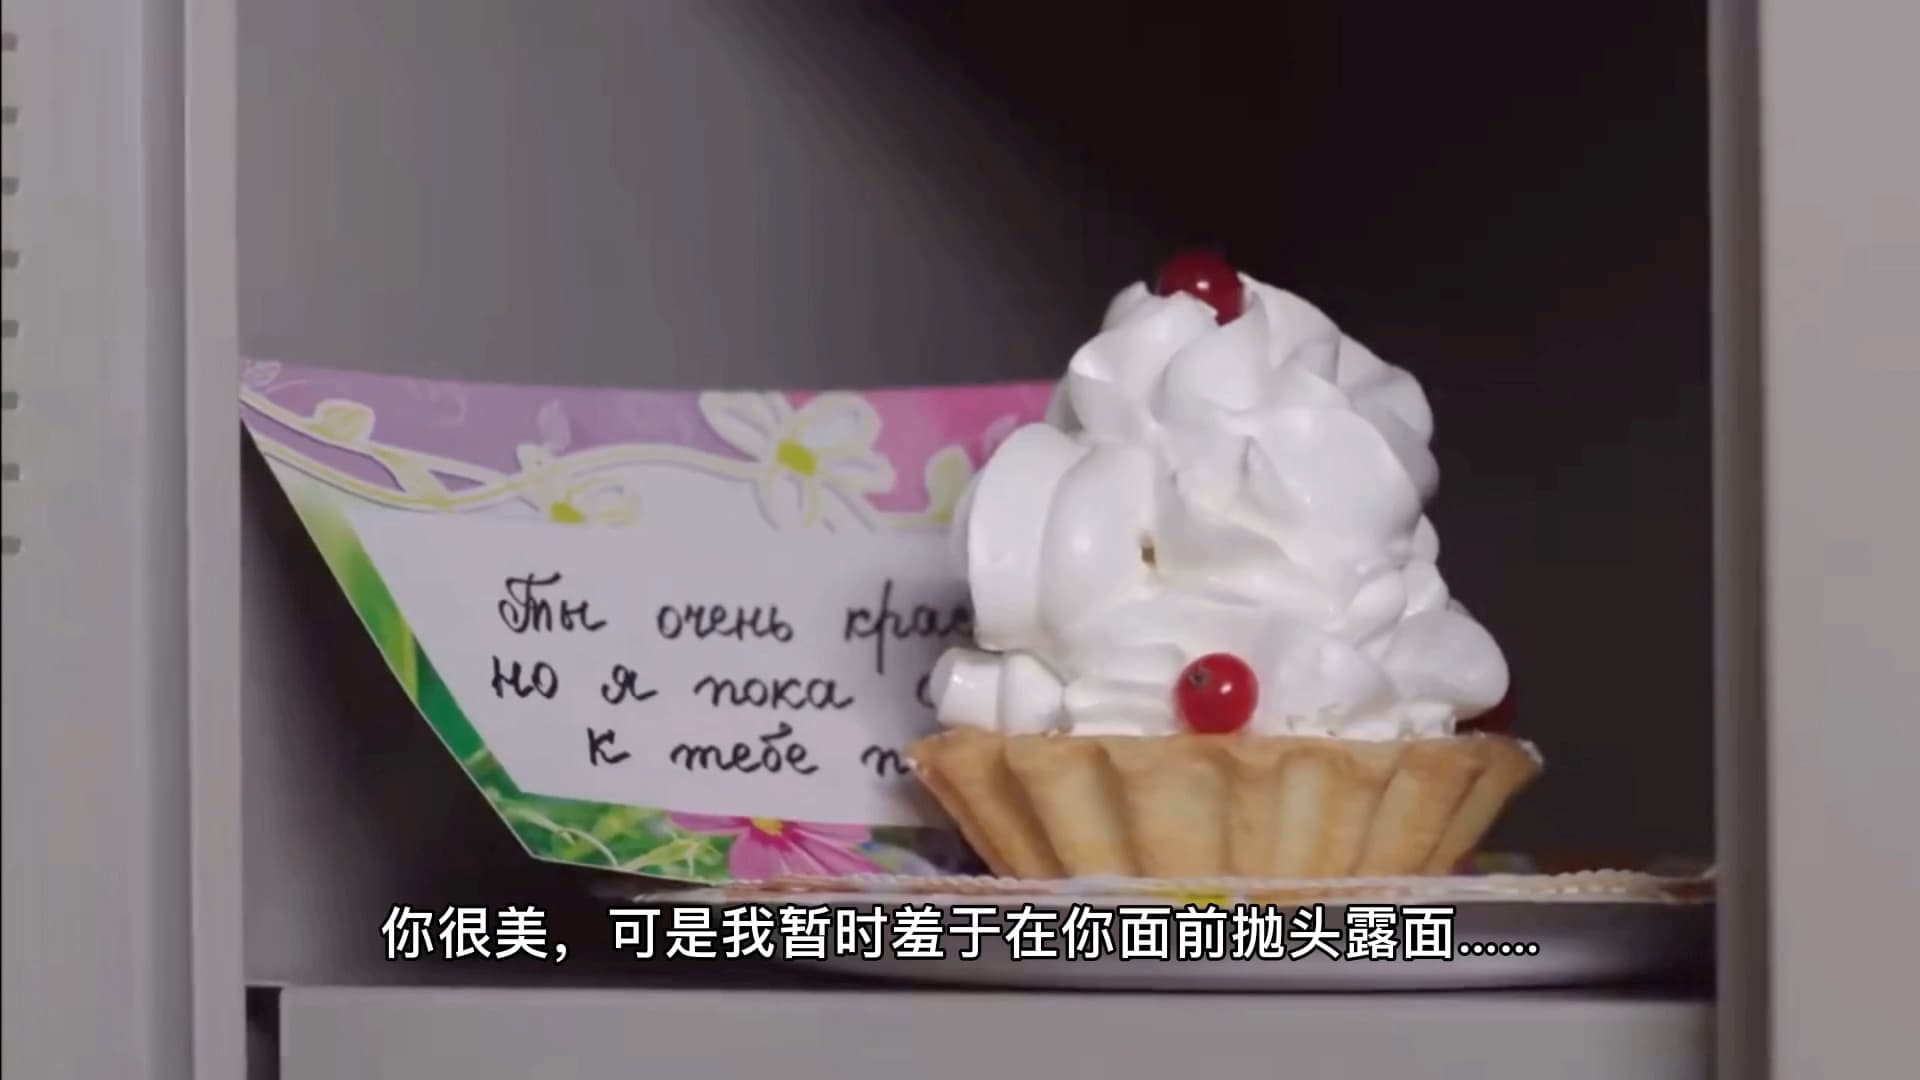 Ты очень крас
но я пока
к тебе п
你很美，可是我暂时羞于在你面前抛头露面……